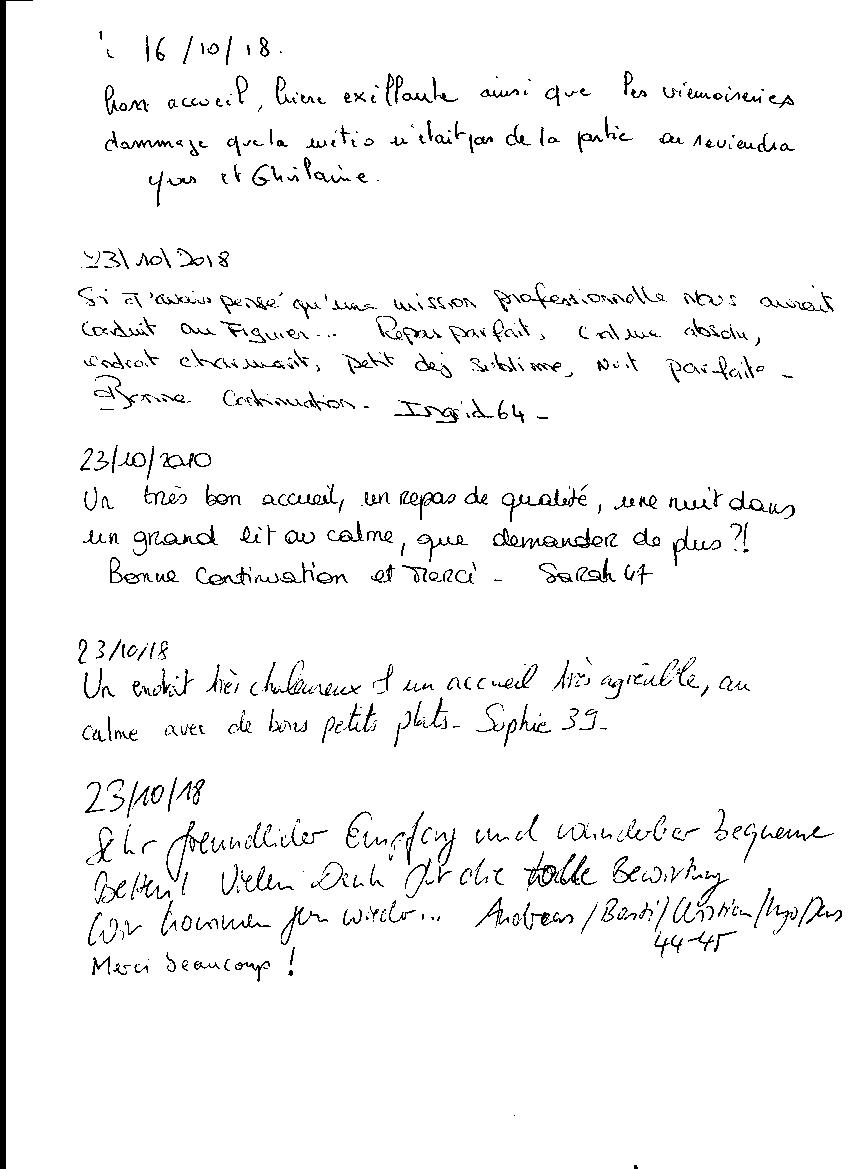 16/10/18.
bon accueil, bière exillante ainsi que les viennoiseries
dammage que la météo n'était pas de la partie on reviendra
Yves et Ghislaine.
23/10/2018
Si j'avais pensé qu'une mission professionnelle nous aurait
conduit au Figuier... Repas parfait, calme absolu,
endroit charmant, petit dej sublime, nuit parfaite -
Bonne Continuation - Ingrid 64 -
23/10/2010
Un très bon accueil, un repas de qualité, une nuit dans
un grand lit au calme, que demander de plus ?!
Bonne Continuation et Merci - Sarah 47
23/10/18
Un endroit très chaleureux et un accueil très agréable, au
calme avec de bons petits plats - Sophie 39 -
23/10/18
Sehr freundlicher Empfang und wunderbar bequeme
Betten! Vielen Dank für die tolle Bewirtung
Wir kommen gern wieder... Andreas / Basti / Christian / Ingo / Jens
44-45
Merci beaucoup !